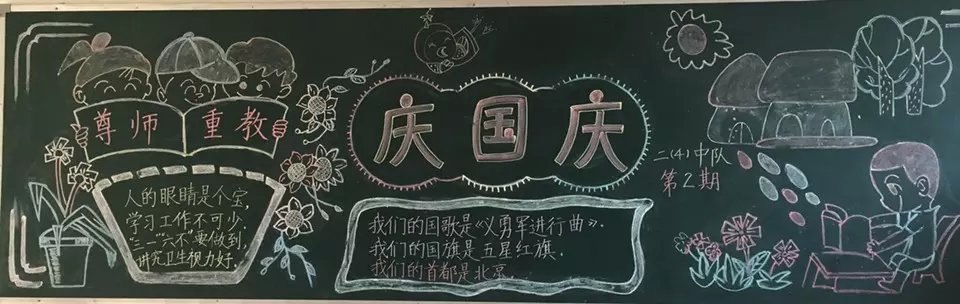 尊师 重教
人的眼睛是个宝,
学习工作不可少,
"三一"六不要做到,
讲究卫生视力好.
庆国庆
我们的国歌是《义勇军进行曲》.
我们的国旗是五星红旗.
我们的首都是北京.
二(4)中队
第2期